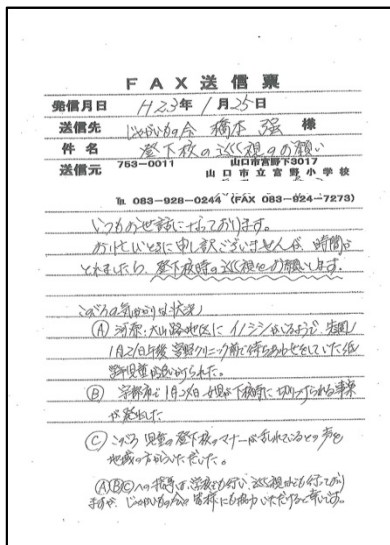 FAX送信票
発信月日 H23年1月25日
送信先 じゃがいもの会 橋本 強 様
件名 登下校の巡視のお願い
送信元 753-0011 山口市宮野下3017
山口市立宮野小学校
℡ 083-928-0244 (FAX 083-924-7273)
いつもお世話になっております。
お忙しいところ申し訳ございませんが、時間が
とれましたら、登下校時の巡視をお願いします。
このごろの気がかりな状況
Ⓐ 河原・大山路地区にイノシシがいるようで、先週
1月21日午後 宮野クリニック前で待ちあわせをしていた低
学年児童が追いかけられた。
Ⓑ 宇部市で1月 日、女児が下校時に切りつけられる事案
が発生した
Ⓒ このごろ児童の登下校のマナーが乱れているとの声を
地域の方からいただいた。
ⒶⒷⒸへの指導は、学校でも行い、巡視も行っており
ますが、じゃがいもの会の皆様にも協力いただけると幸いです。